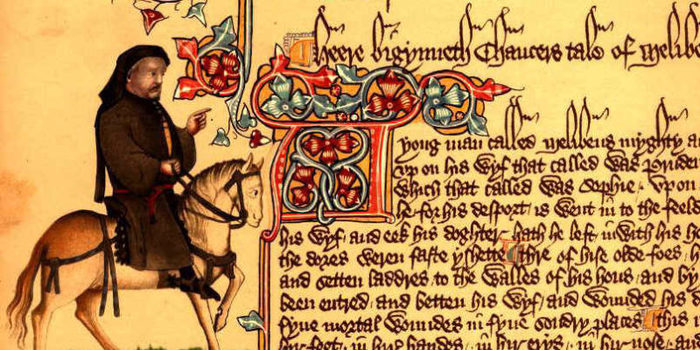 Heere bigynneth Chaucers tale of Melibe
A yong man called Melibeus myghty a
vp on his wyf that called was Pruden
Which that called was Sophie . Vpon
he for his desport is went in to the feeld
his wyf and eek his doghter hath he left in with his ho
the dores weren faste yshette Thre of hise olde foes h
and setten laddres to the walles of his hous and by
been entred and betten his wyf and wounded his d
fyue mortal woundes in fyue sondry places this i
hir feet in hir handes in hir erys in hir nose and